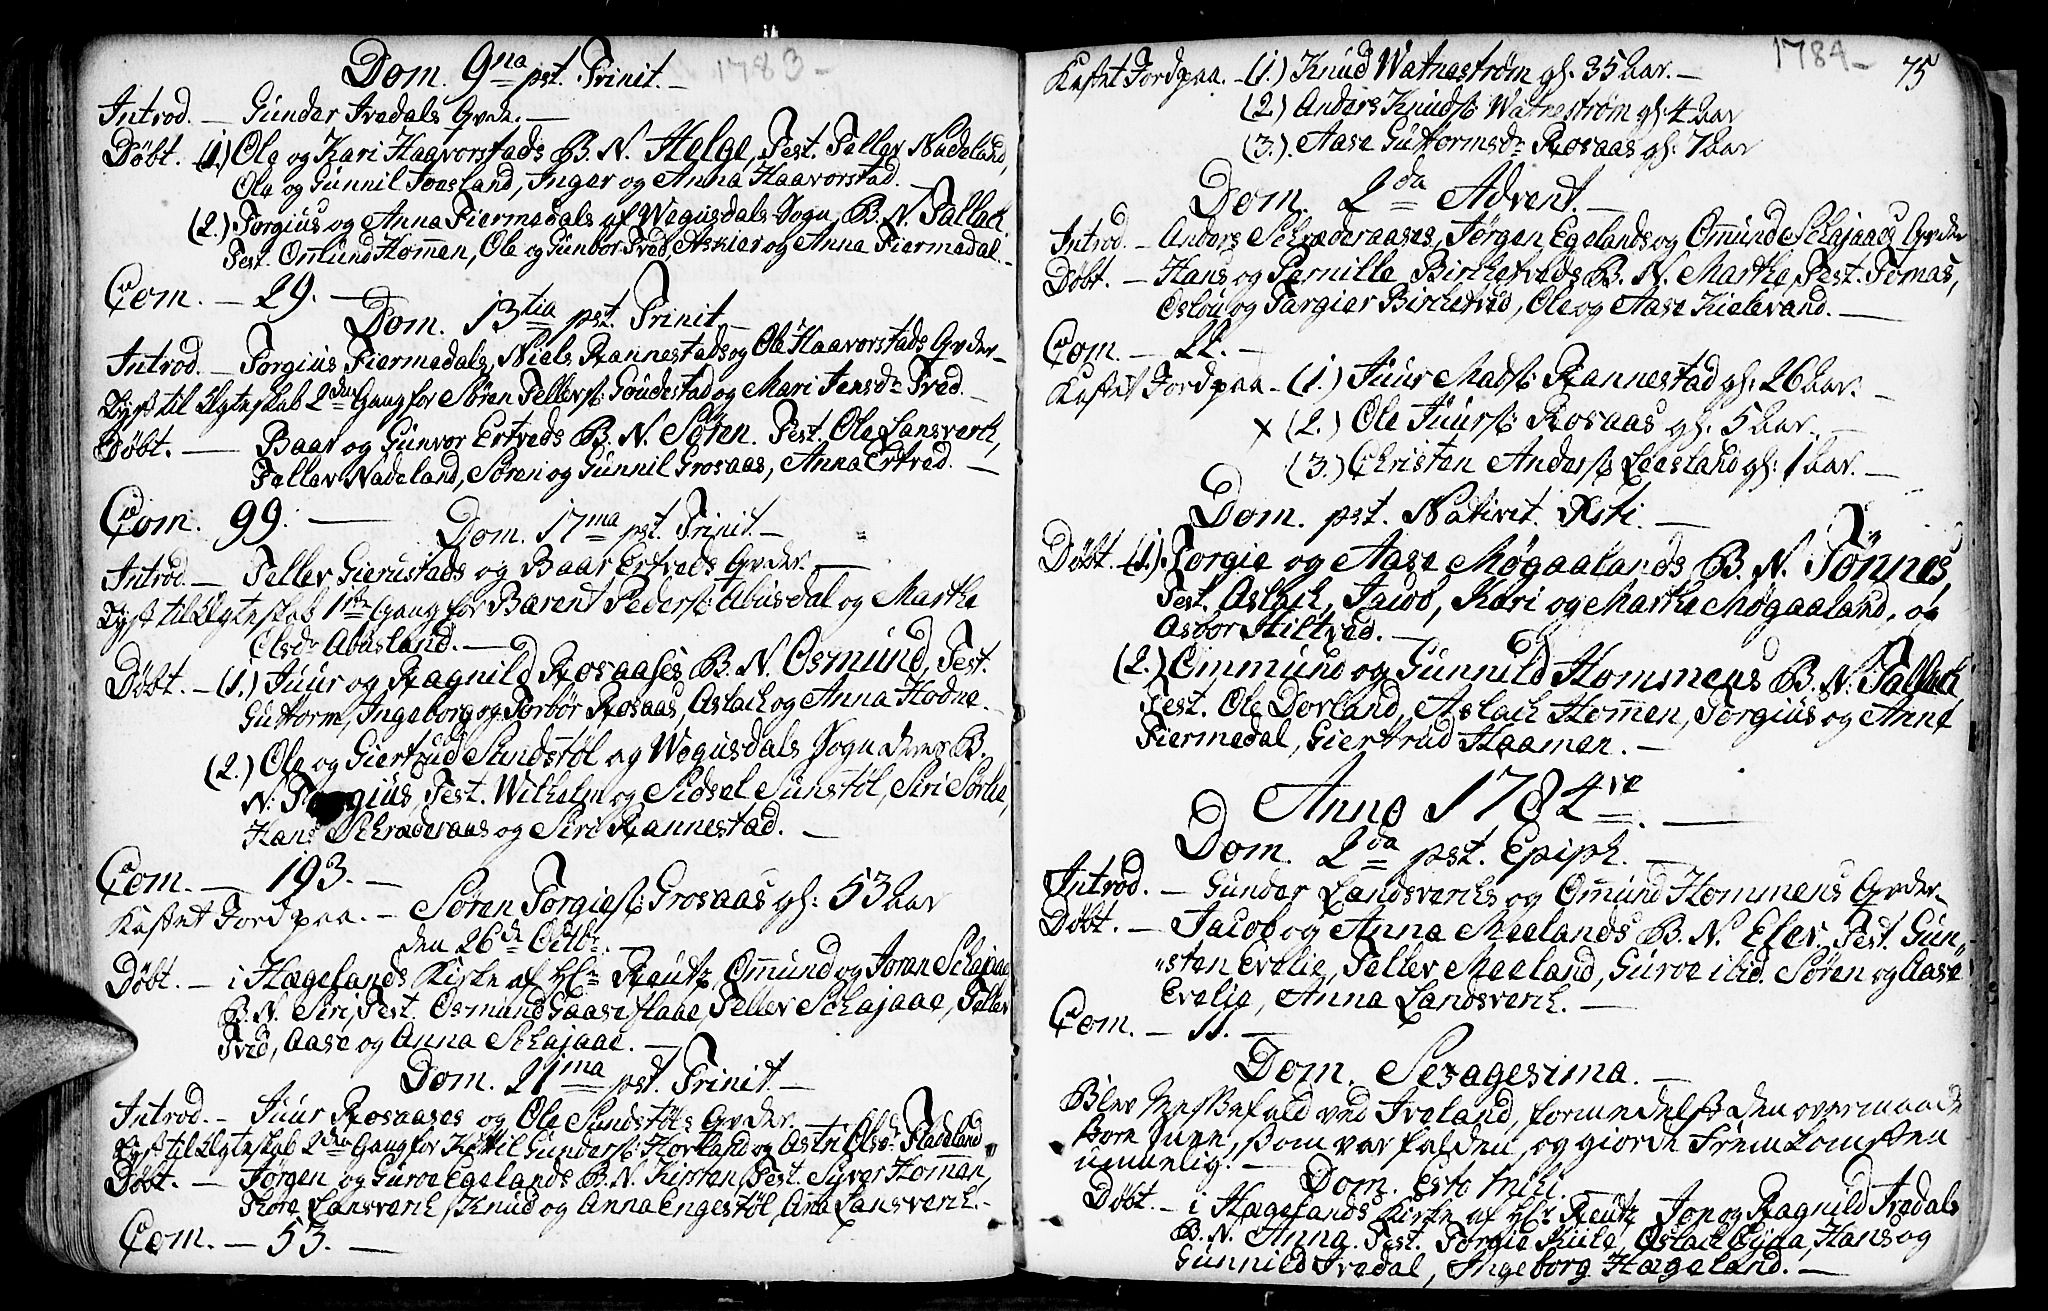 Dom. 9na pst. Trinit. — 1783 —
Introd. — Gunder Ivedals Qvde. —
Døbt. (1.) Ole og Kari Haavorstads B. N. Helge, Test. Tellev Nadeland,
Ole og Gunnil Joesland, Inger og Anna Haavorstad. —
(2.) Torgius og Anna Fiermedals af Wegusdals Sogn, B. N. Tallak,
Test. Omund Hommen, Ole og Gunbor Tved, Askier og Anna Fiermedal. —
Com. — 29. —
Dom. 13tia pst. Trinit. —
Introd. — Torgius Fiermedals, Niels Rannestads og Ole Haavorstads Qvder —
Lyst til Ægteskab 2den Gang for Søren Tellefs: Goudestad og Mari Jensdr Tved. —
Døbt. — Baar og Gunvor Ertveds B. N. Søren. Test. Ole Lansverk,
Tellev Nadeland, Søren og Gunnil Grosaas, Anna Ertved. —
Com. 99. —
Dom. 17ma pst. Trinit. —
Introd. — Tellev Gierustads og Baar Ertveds Qvder. —
Lyst til Ægteskab 1ste Gang for Barent Peders: Abusdal og Marthe
Olsdr Abusland. —
Døbt. — (1.) Juur og Ragnild Rosaases B. N. Osmund, Test.
Guttorm, Ingeborg og Torbør Rosaas, Aslach og Anna Hodne. —
(2.) Ole og Giertrud Sundstøl ag Wegusdals Sogn deres B.
N: Torgius, Test. Wilhelm og Sidsel Sunstøl, Siri Sørlie,
Hans Schræderaas og Siri Rannestad. —
Com. — 193. —
Kastet Jord paa. — Søren Torgies: Grosaas gl: 53 Aar
den 26de Octbr. —
Døbt. — i Hægelands Kirke af Hr. Reutz, Omund og Joran Schajaae
B. N. Siri, Test. Osmund Gaaseflaae, Tellev Schajaae, Tellev
Tved, Aase og Anna Schajaae. —
Dom. 21ma pst. Trinit. —
Introd. — Juur Rosaases og Ole Sundstøls Qvder. —
Lyst til Ægteskab 2den Gang for Kettil Gunders: Hortland og Astri Olsdr Fladeland
Døbt. — Jørgen og Guroe Egelands B. N. Kirsten, Test. Syver Homan,
Thore Lansverk, Knud og Anna Engestøl, Ana Lansverk. —
Com. — 53. —
1784 — 75
Kastet Jord paa. — (1.) Knud Watnestrøm gl. 35 Aar. —
(2) Anders Knuds: Watnestrøm gl: 4 Aar
(3.) Aase Guttormsdr Rosaas gl: 7 Aar
Dom. 2da Advent. —
Introd. — Anders Schræderaases, Jørgen Egelands og Omund Schajaaes Qvder
Døbt. — Hans og Pernille Birketveds B. N. Marthe, Test. Tomas,
Oslou og Targier Birketved, Ole og Aase Kielevand. —
Com. — 22. —
Kastet Jord paa — (1.) Juur Mads: Rannestad gl: 26 Aar. —
x (2.) Ole Juurs: Rosaas gl. 5 Aar. —
(3.) Christen Anders: Leesland gl: 1 Aar. —
Dom. pst. Nativit. Xsti. —
Døbt. (1.) Torgie og Aase Møgaalands B. N. Tønnes,
Test. Aslach, Jacob, Kari og Marthe Møgaaland, og
Asbor Stiltved. —
(2.) Ommund og Gunnild Hommens B. N: Tallack
Test. Ole Dovland, Aslach Hommen, Torgius og Anne
Fiermedal, Giertrud Haamen. —
Anno 1784re. —
Dom. 2da pst. Epiph. —
Introd. — Gunder Landsverchs og Omund Hommens Qvder —
Døbt. — Jacob og Anna Meelands B. N. Elev. Test. Gun„
„sten Evelie, Tellev Meeland, Guroe ibid. Søren og Aase
Evelie, Anna Landsverch. —
Com. — 11. —
Dom. Sexagesima. —
Blev Messefald ved Iveland, formedelst den overmaade
store Snee, som var falden, og giorde Fremkomsten
umuelig. —
Dom. Esto mihi. —
Døbt. — i Hægelands Kirke af Hr. Reutz Jon og Ragnild Ivedals
B. N. Anna. Test. Torgie Kiile, Oslach Eyna, Hans og
Gunnild Ivedal, Ingeborg Hægeland. —